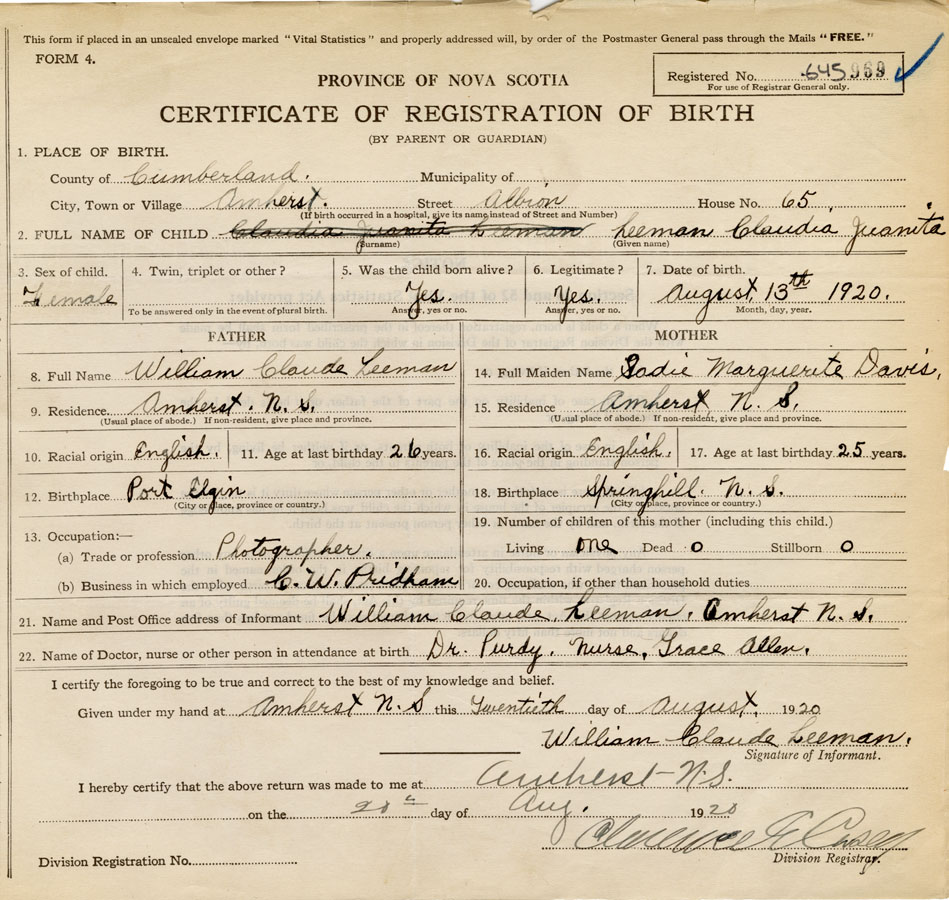 This form if placed in an unsealed envelope marked "Vital Statistics" and properly addressed will, by order of the Postmaster General pass through the Mails "FREE."
FORM 4.
Registered No. 645969
For use of Registrar General only.
PROVINCE OF NOVA SCOTIA
CERTIFICATE OF REGISTRATION OF BIRTH
(BY PARENT OR GUARDIAN)
1. PLACE OF BIRTH.
County of Cumberland. Municipality of
City, Town or Village Amherst. Street Albion House No. 65
(If birth occurred in a hospital, give its name instead of Street and Number)
2. FULL NAME OF CHILD Claudia Juanita Leeman Leeman Claudia Juanita
(Surname) (Given name)
3. Sex of child. 4. Twin, triplet or other? 5. Was the child born alive? 6. Legitimate? 7. Date of birth.
Female Yes. Yes. August 13th 1920.
To be answered only in the event of plural birth. Answer, yes or no. Answer, yes or no. Month, day, year.
FATHER MOTHER
8. Full Name William Claude Leeman 14. Full Maiden Name Sadie Marguerite Davis,
9. Residence. Amherst. N. S. 15. Residence Amherst N. S.
(Usual place of abode.) If non-resident, give place and province. (Usual place of abode.) If non-resident, give place and province.
10. Racial origin English. 11. Age at last birthday 26 years. 16. Racial origin English. 17. Age at last birthday 25 years.
12. Birthplace Port Elgin 18. Birthplace Springhill. N. S.
(City or place, province or country.) (City or place, province or country.)
13. Occupation:— 19. Number of children of this mother (including this child.)
(a) Trade or profession Photographer. Living one Dead 0 Stillborn 0
(b) Business in which employed C. W. Pridham 20. Occupation, if other than household duties
21. Name and Post Office address of Informant William Claude, Leeman. Amherst N. S.
22. Name of Doctor, nurse or other person in attendance at birth Dr. Purdy. Nurse, Grace Allen.
I certify the foregoing to be true and correct to the best of my knowledge and belief.
Given under my hand at Amherst N. S this Twentieth day of August, 1920
William Claude Leeman.
Signature of Informant.
I hereby certify that the above return was made to me at Amherst N.S.
on the 20th day of Aug. 1920
Clarence
Division Registrar.
Division Registration No.